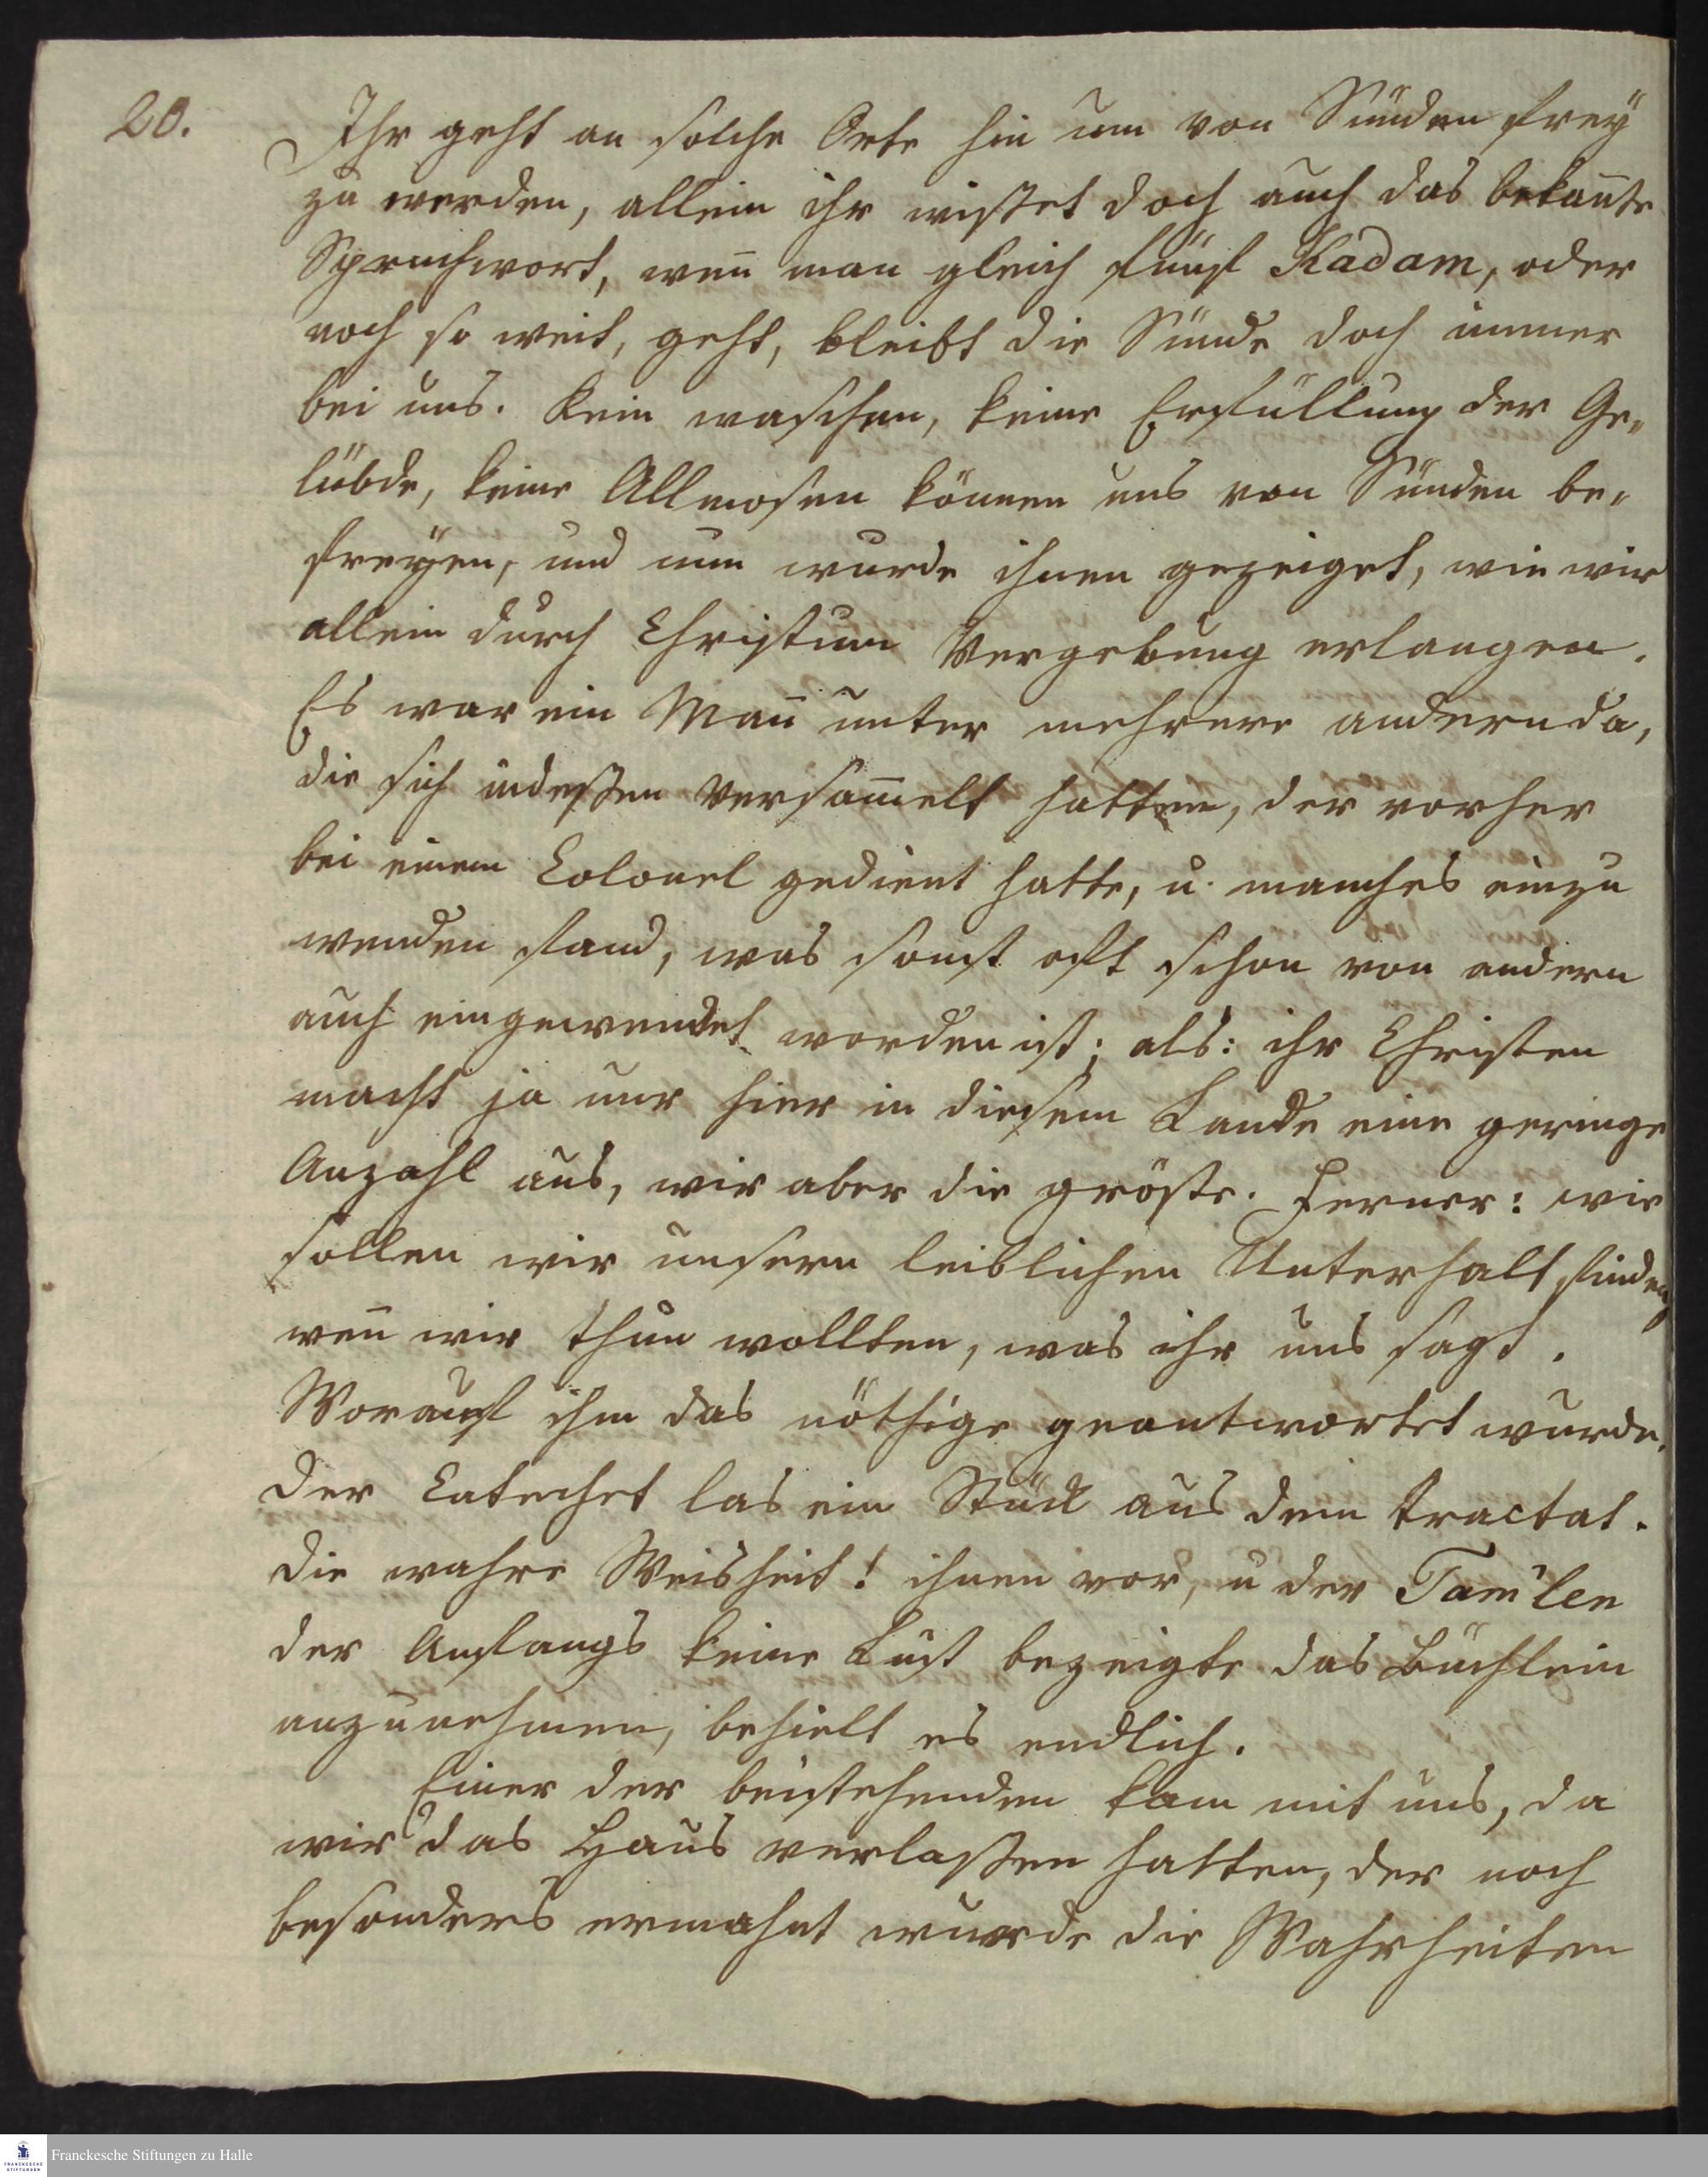 20.
Ihr geht an solche Orte hin um von Sünden freÿ
zu werden, allein ihr wißet doch auch das bekan̄te
Spruchwort, wen̄ man gleich fünf Kadam, oder
noch so weit, geht, bleibt die Sünde doch immer
bei uns. Kein waschen, keine Erfüllung der Ge„
lübde, keine Allmosen können uns von Sünden be„
freÿen, und nun wurde ihnen gezeiget, wie wir
allein durch Christum Vergebung erlangen.
Es war ein Man̄ unter mehrere andern da,
die sich indeßen versam̄elt hatten, der vorher
bei einem Colonel gedient hatte, u. manches einzu
wenden fand, was sonst oft schon von andern
auch eingewendet worden ist; als: ihr Christen
macht ja nur hier in diesem Lande eine geringe
Anzahl aus, wir aber die gröste. Ferner: wie
sollen wir unsern leiblichen Unterhalt finden,
wen̄ wir thun wollten, was ihr uns sagt.
Worauf ihm das nöthige geantwortet wurde.
Der Catechet las ein Stück aus dem tractat.
die wahre Weisheit! ihnen vor, u der Tamu̍len
der Anfangs keine Lust bezeigte das Büchlein
anzunehmen, behielt es endlich.
Einer der beistehenden kam mit uns, da
wir das Haus verlaßen hatten, der noch
besonders ermahnt wurde die Wahrheiten
Franckesche Stiftungen zu Halle
FRANCKESCHE
STIFTUNGEN